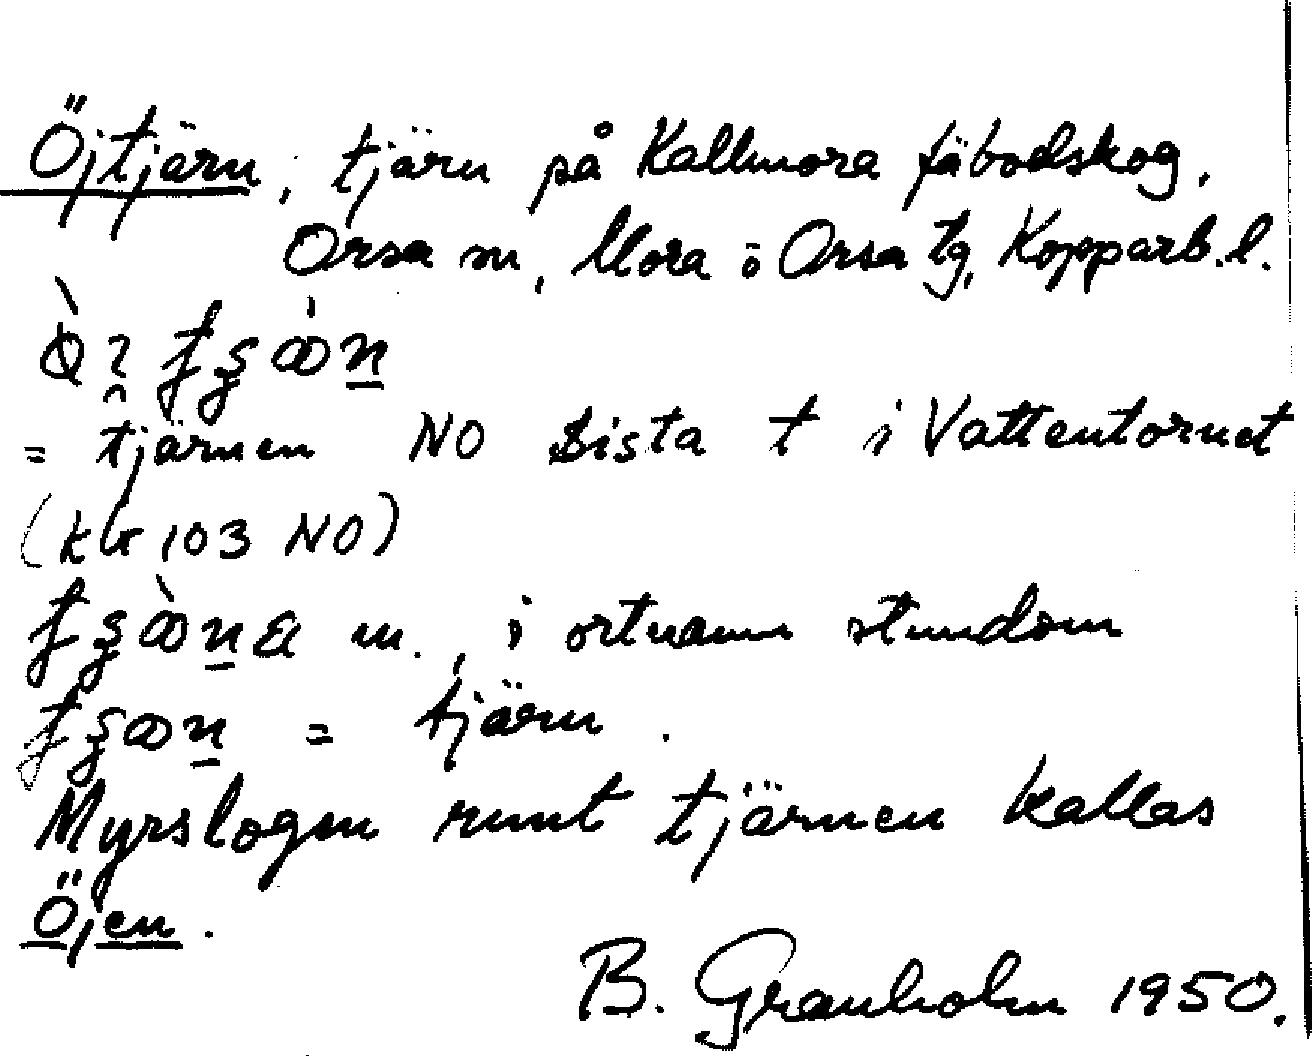 Öjtjärn, tjärn på Kallmora fäbodskog,
Orsa sn, Mora o Orsa tg, Kopparb. l.
= tjärnen NO sista t i Vattentornet
(kbr 103 NO)
m., i ortnamn stundom
= tjärn.
Myrslogen runt tjärnen kallas
Öjen.
B. Granholm 1950.